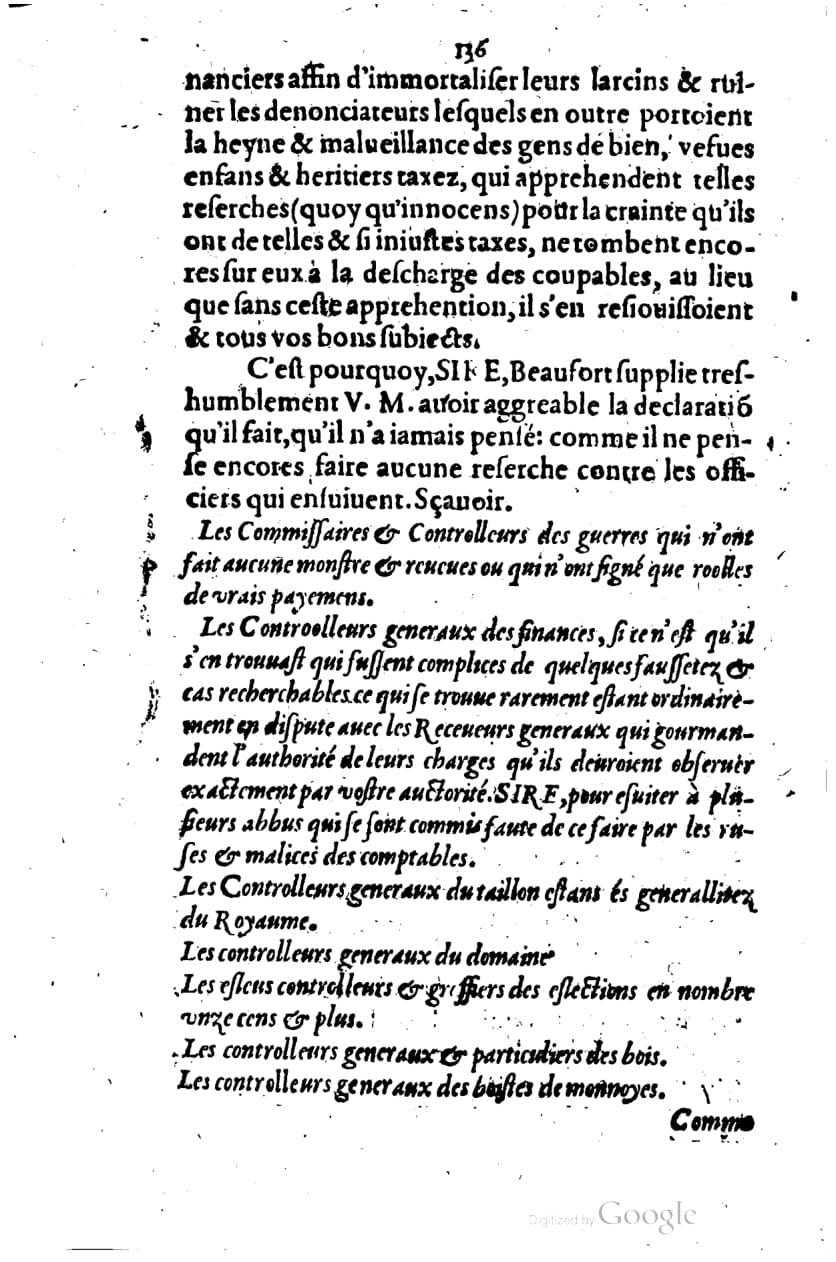 136
nanciers affin d'immortaliſer leurs larcins & rui-
ner les denonciateurs leſquels en outre portoient
la heyne & malueillance des gens de bien, vefues
enfans & heritiers taxez, qui apprehendent telles
reſerches (quoy qu'innocens) pour la crainte qu'ils
ont de telles & ſi iniuſtes taxes, ne tombent enco-
res ſur eux à la deſcharge des coupables, au lieu
que ſans ceſte apprehention, il s'en reſiouiſſoient
& tous vos bons ſubiects.
C'eſt pourquoy, SIRE, Beaufort ſupplie treſ-
humblement V. M. auoir aggreable la declaratiõ
qu'il fait, qu'il n'a iamais penſé: comme il ne pen-
ſe encores faire aucune reſerche contre les offi-
ciers qui enſuiuent. Sçauoir.
Les Commiſſaires & Controlleurs des guerres qui n'ont
fait aucune monſtre & reueues ou qui n'ont ſigné que roolles
de vrais payemens.
Les Controolleurs generaux des finances, ſi ce n'eſt qu'il
s'en trouuaſt qui fuſſent complices de quelques fauſſetez &
cas recherchables. ce qui ſe trouue rarement eſtant ordinaire-
ment en diſpute auec les Receueurs generaux qui gourman-
dent l'authorité de leurs charges qu'ils deuroient obſeruer
exactement par voſtre auctorité. SIRE, pour eſuiter à plu-
ſieurs abbus qui ſe ſont commis faute de ce faire par les ru-
ſes & malices des comptables.
Les Controlleurs generaux du taillon eſtans és generallitez
du Royaume.
Les controlleurs generaux du domaine
Les eſleus controlleurs & greffiers des eſlections en nombre
vnze cens & plus.
Les controlleurs generaux & particuliers des bois.
Les controlleurs generaux des boiſtes de monnoyes.
Comme
Digitized by Google